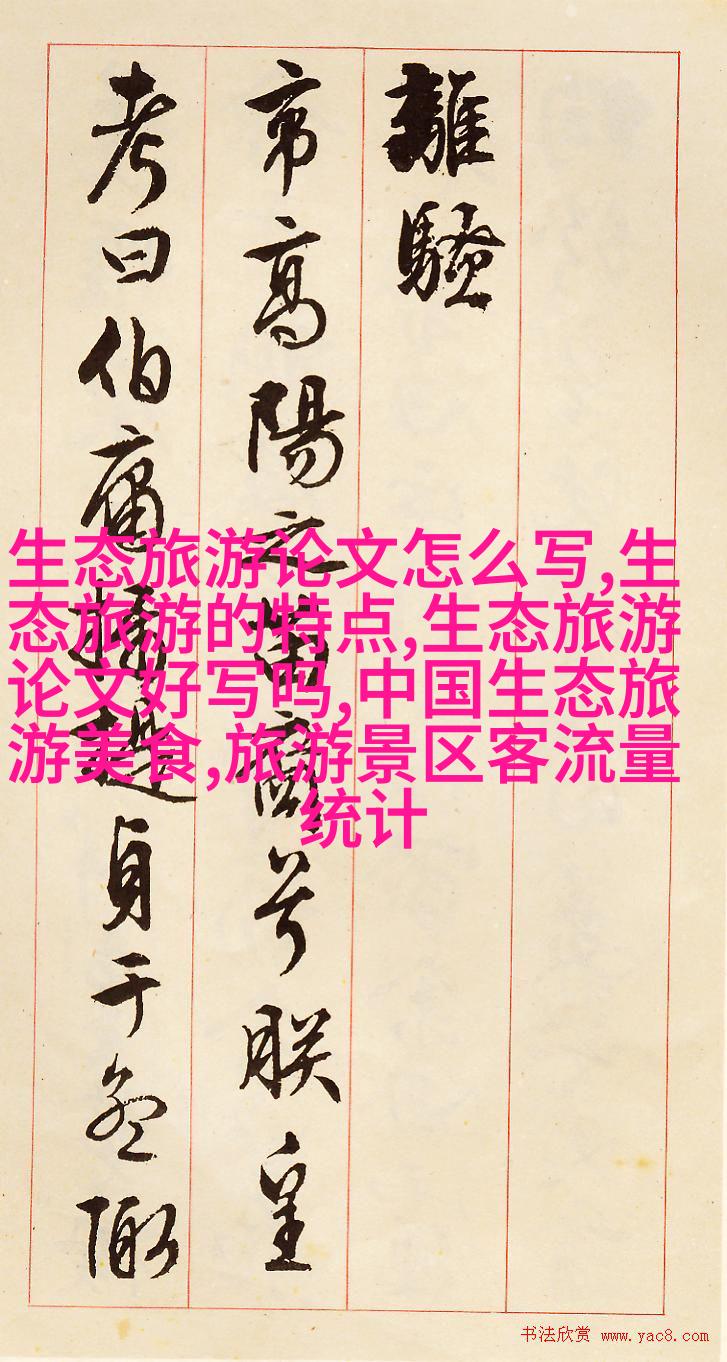 離騷
帝高陽之苗裔兮朕皇
考曰伯庸攝提貞于孟陬
生态旅游论文怎么写,生
态旅游的特点,生态旅游
论文好写吗,中国生态旅
游美食,旅游景区客流量
统计
书法欣赏 www.yac8.com